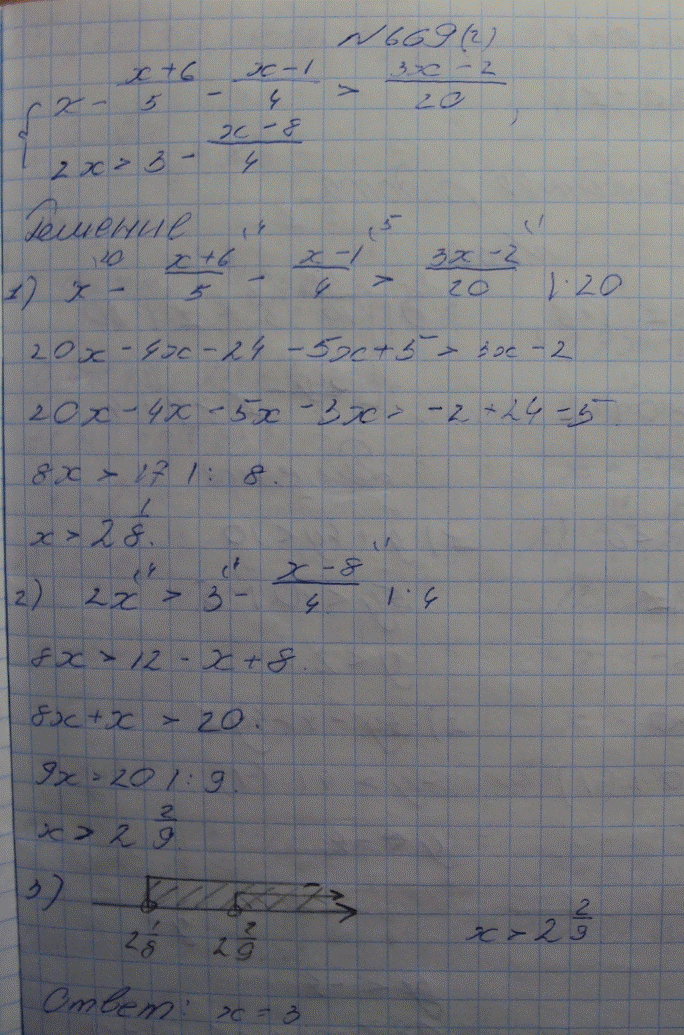 №669(2)
{ x - (x+6)/5 - (x-1)/4 > (3x-2)/20 ,
2x > 3 - (x-8)/4
Решение
1) x⁽²⁰ - (x+6)/5 ⁽⁴ - (x-1)/4 ⁽⁵ > (3x-2)/20 ⁽¹ |·20
20x - 4x - 24 - 5x + 5 > 3x - 2
20x - 4x - 5x - 3x > -2 + 24 - 5
8x > 17 |: 8.
x > 2 1/8.
2) 2x⁽⁴ > 3⁽⁴ - (x-8)/4 ⁽¹ |·4
8x > 12 - x + 8.
8x + x > 20.
9x > 20 |: 9.
x > 2 2/9
3)
2 1/8 2 2/9 x > 2 2/9
Ответ: x = 3